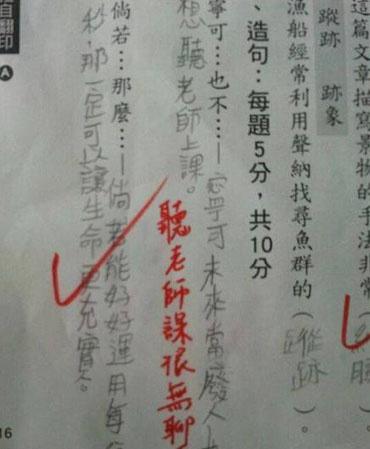 這篇文章描寫景物的手法非常（細膩）。
漁船經常利用聲納找尋魚群的（蹤跡）。
蹤跡　跡象
、造句：每題5分，共10分
寧可…也不…—寧可未來當廢人
想聽老師上課。
聽老師課很無聊
倘若…那麼…—倘若能好好運用每
秒，那一定可以讓生命更充實。
自翻印
A
16